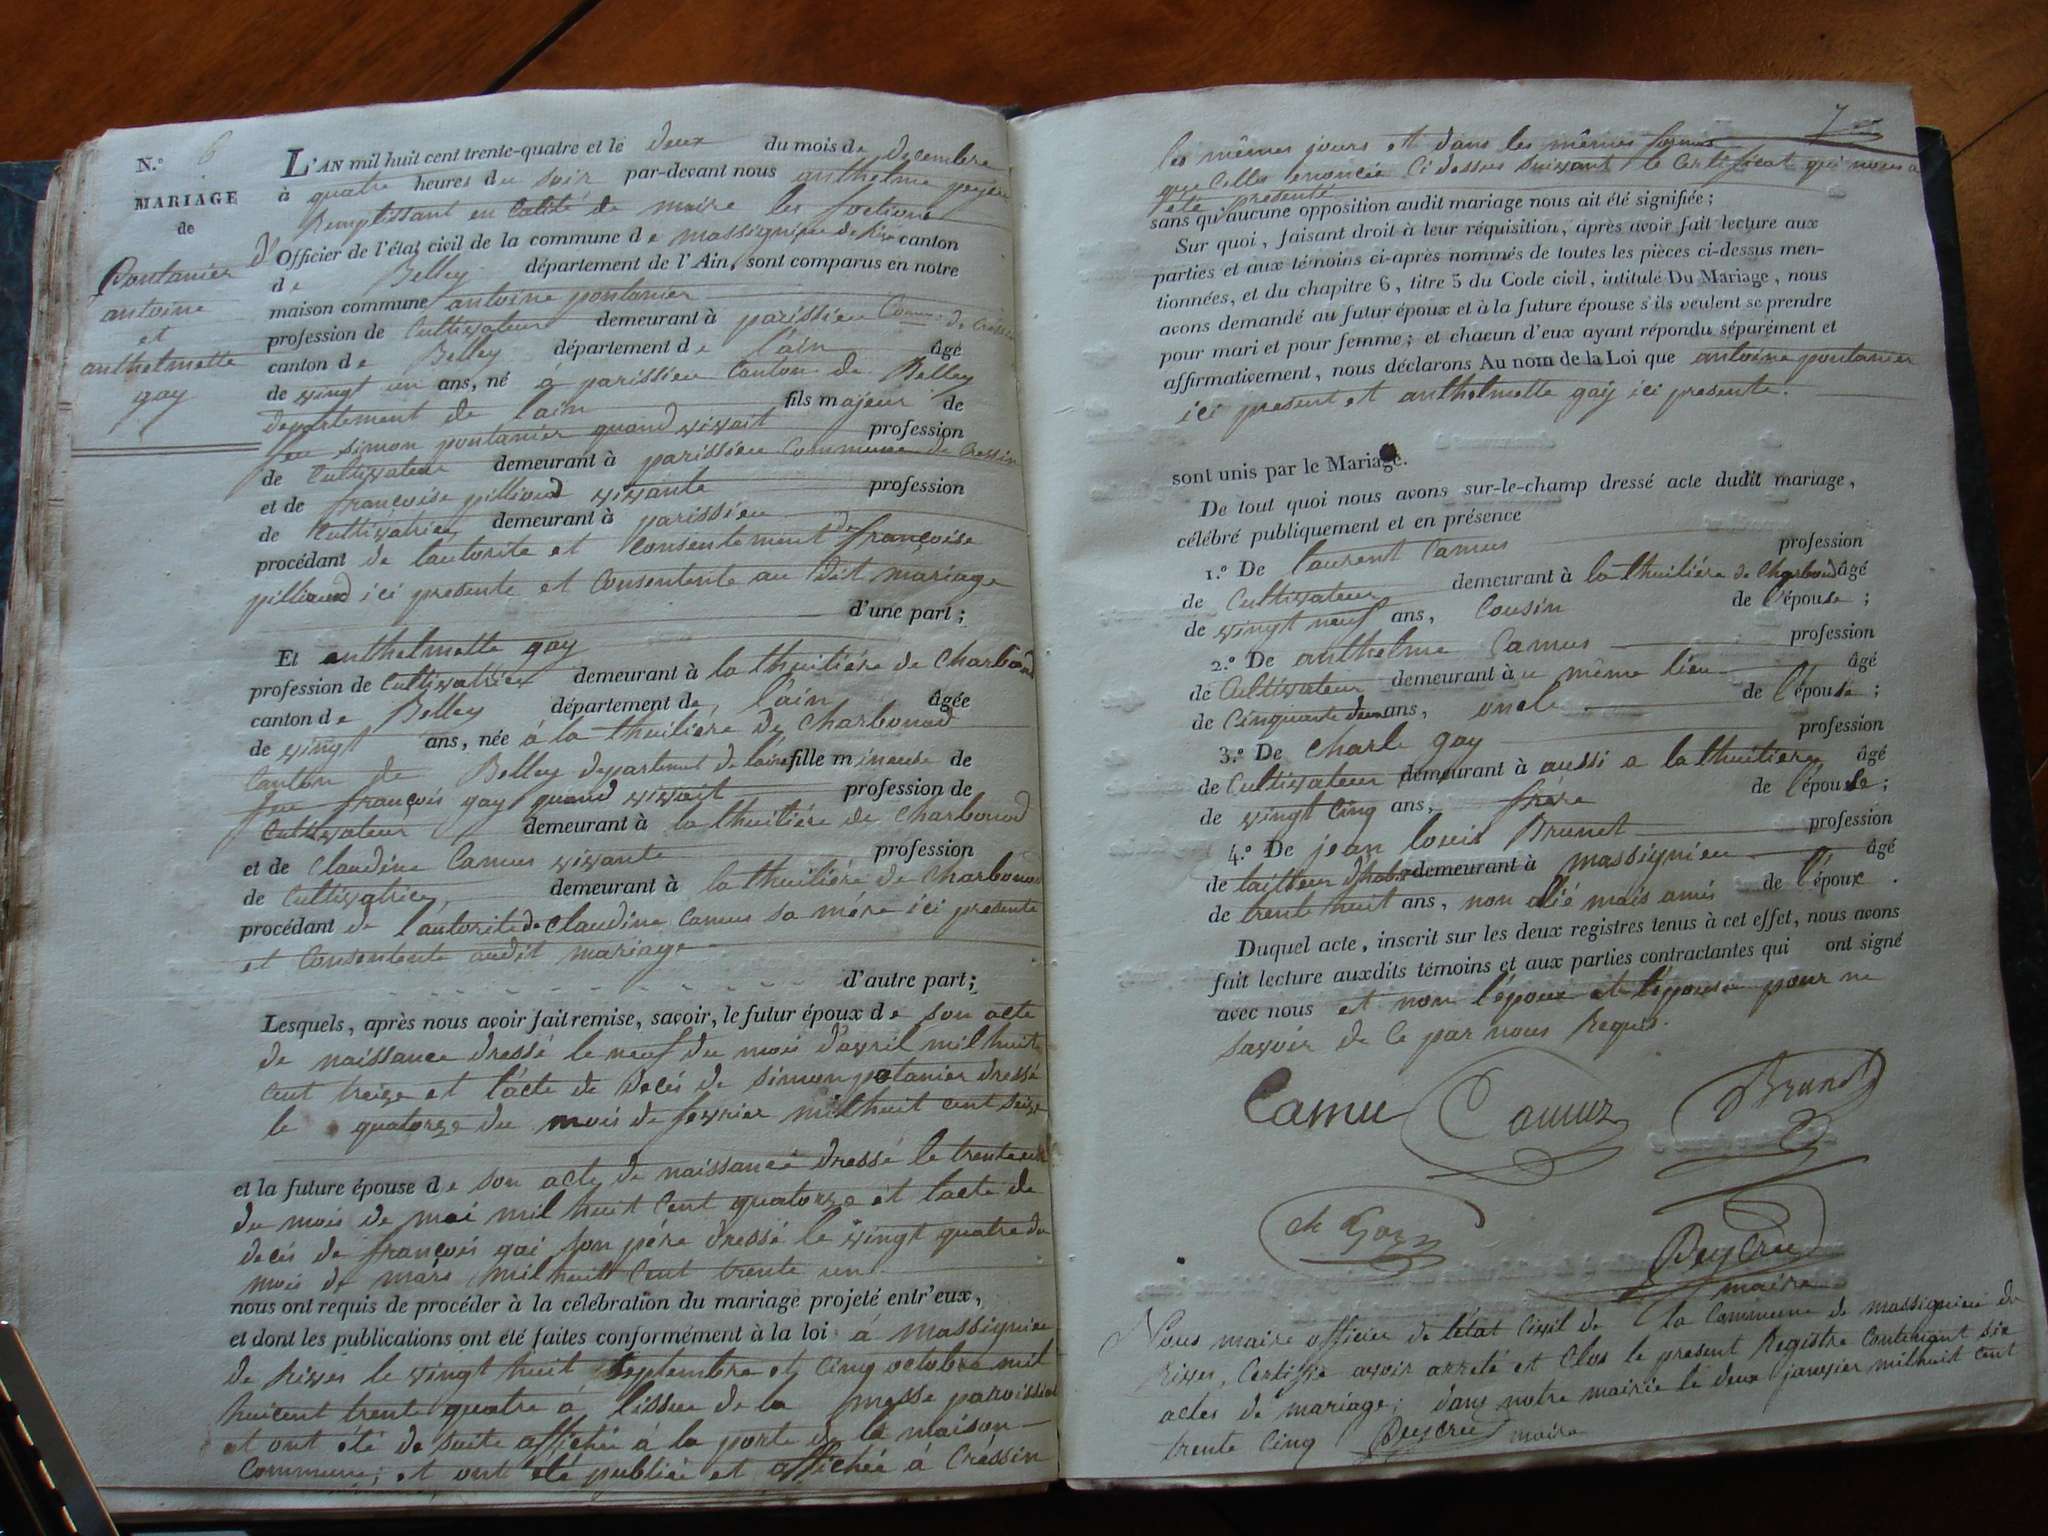 N.º 6
MARIAGE
de
Pontanier
antoine
et
anthelmette
gay
L'AN mil huit cent trente-quatre et le deux du mois de decembre
à quatre heures du soir par-devant nous anthelme
Remplissant en Calité de maire les foctions
d'Officier de l'état civil de la commune de massignieu de Rive canton
de Belley département de l'Ain, sont comparus en notre
maison commune antoine pontanier
profession de Cultivateur demeurant à parissieu Comm. de Cressin
canton de Belley département de l'ain âgé
de vingt un ans, né à parissieu Canton de Belley
departement de l'ain fils majeur de
feu simon pontanier quand vivait profession
de Cultivateur demeurant à parissieu Commune de Cressin
et de françoise pilliand vivante profession
de Cultivatrice demeurant à parissieu
procédant de l'autorite et consentement de françoise
pilliaud ici presente et Consentente au dit mariage
d'une part;
Et anthelmette gay
profession de Cultivatrice demeurant à la thuiliére de Charbonod
canton de Belley département de l'ain âgée
de vingt ans, née à la thuiliere de Charbonod
Canton de Belley departement de l'ain fille mineuse de
feu françois gay quand vivait profession de
Cultivateur demeurant à la thuiliére de Charbonod
et de Claudine Camus vivante profession
de Cultivatrice, demeurant à la thuiliére de Charbonod
procédant de l'autorité de Claudine Camus sa mére ici presente
et Consentente audit mariage
d'autre part;
Lesquels, après nous avoir fait remise, savoir, le futur époux de son acte
de naissance dressé le neuf du mois d'avril mil huit
cent treize et l'acte de Decés de simon potanier dressé
le quatorze du mois de fevrier mil huit cent seize
et la future épouse de son acte de naissance dressé le trente
du mois de mai mil huit Cent quatorze et l'acte de
decés de françois gai son pére dressé le vingt quatre du
mois de mars mil huit Cent trente un
nous ont requis de procéder à la célébration du mariage projeté entr'eux,
et dont les publications ont été faites conformément à la loi à massignieu
de Rives le vingt huit septembre et cinq octobre mil
huicent trente quatre à l'issue de la messe paroissial
et ont été de suite affichée à la porte de la maison
Commune; et ont été publiée et affichée à Cressin
7
les mêmes jours et dans les mêmes formes
que Celles enoncée Ci dessus suivant le Certificat qui nous a
été presenté
sans qu'aucune opposition audit mariage nous ait été signifiée;
Sur quoi, faisant droit à leur réquisition, après avoir fait lecture aux
parties et aux témoins ci-après nommés de toutes les pièces ci-dessus men-
tionnées, et du chapitre 6, titre 5 du Code civil, intitulé Du Mariage, nous
avons demandé au futur époux et à la future épouse s'ils veulent se prendre
pour mari et pour femme; et chacun d'eux ayant répondu séparément et
affirmativement, nous déclarons Au nom de la Loi que antoine pontanier
ici present et anthelmette gay ici presente.
sont unis par le Mariage.
De tout quoi nous avons sur-le-champ dressé acte dudit mariage,
célébré publiquement et en présence
1.º De laurent Camus profession
de Cultivateur demeurant à la thuiliére de Charbonod âgé
de vingt neuf ans, Cousin de l'épouse;
2.º De anthelme Camus profession
de Cultivateur demeurant à u même lieu âgé
de Cinquante deux ans, oncle de l'épouse;
3.º De Charle gay profession
de Cultivateur demeurant à aussi a la thuiliere âgé
de vingt Cinq ans, frére de l'épouse;
4.º De jean louis Brunet profession
de tailleur d'habit demeurant à massignieu âgé
de trente huit ans, non allié mais ami de l'époux.
Duquel acte, inscrit sur les deux registres tenus à cet effet, nous avons
fait lecture auxdits témoins et aux parties contractantes qui ont signé
avec nous et non l'époux et l'épouse pour ne
savoir de Ce par nous Requis.
Camu Camuz Brunet
ch Gay
Peycru
maire
Nous maire officier de l'état Civil de la Commune de massignieu de
Rives, Certifie avoir arreté et Clos le present Registre Contenant six
actes de mariage; dans notre mairie le deux janvier mil huit cent
trente Cinq Peycru maire